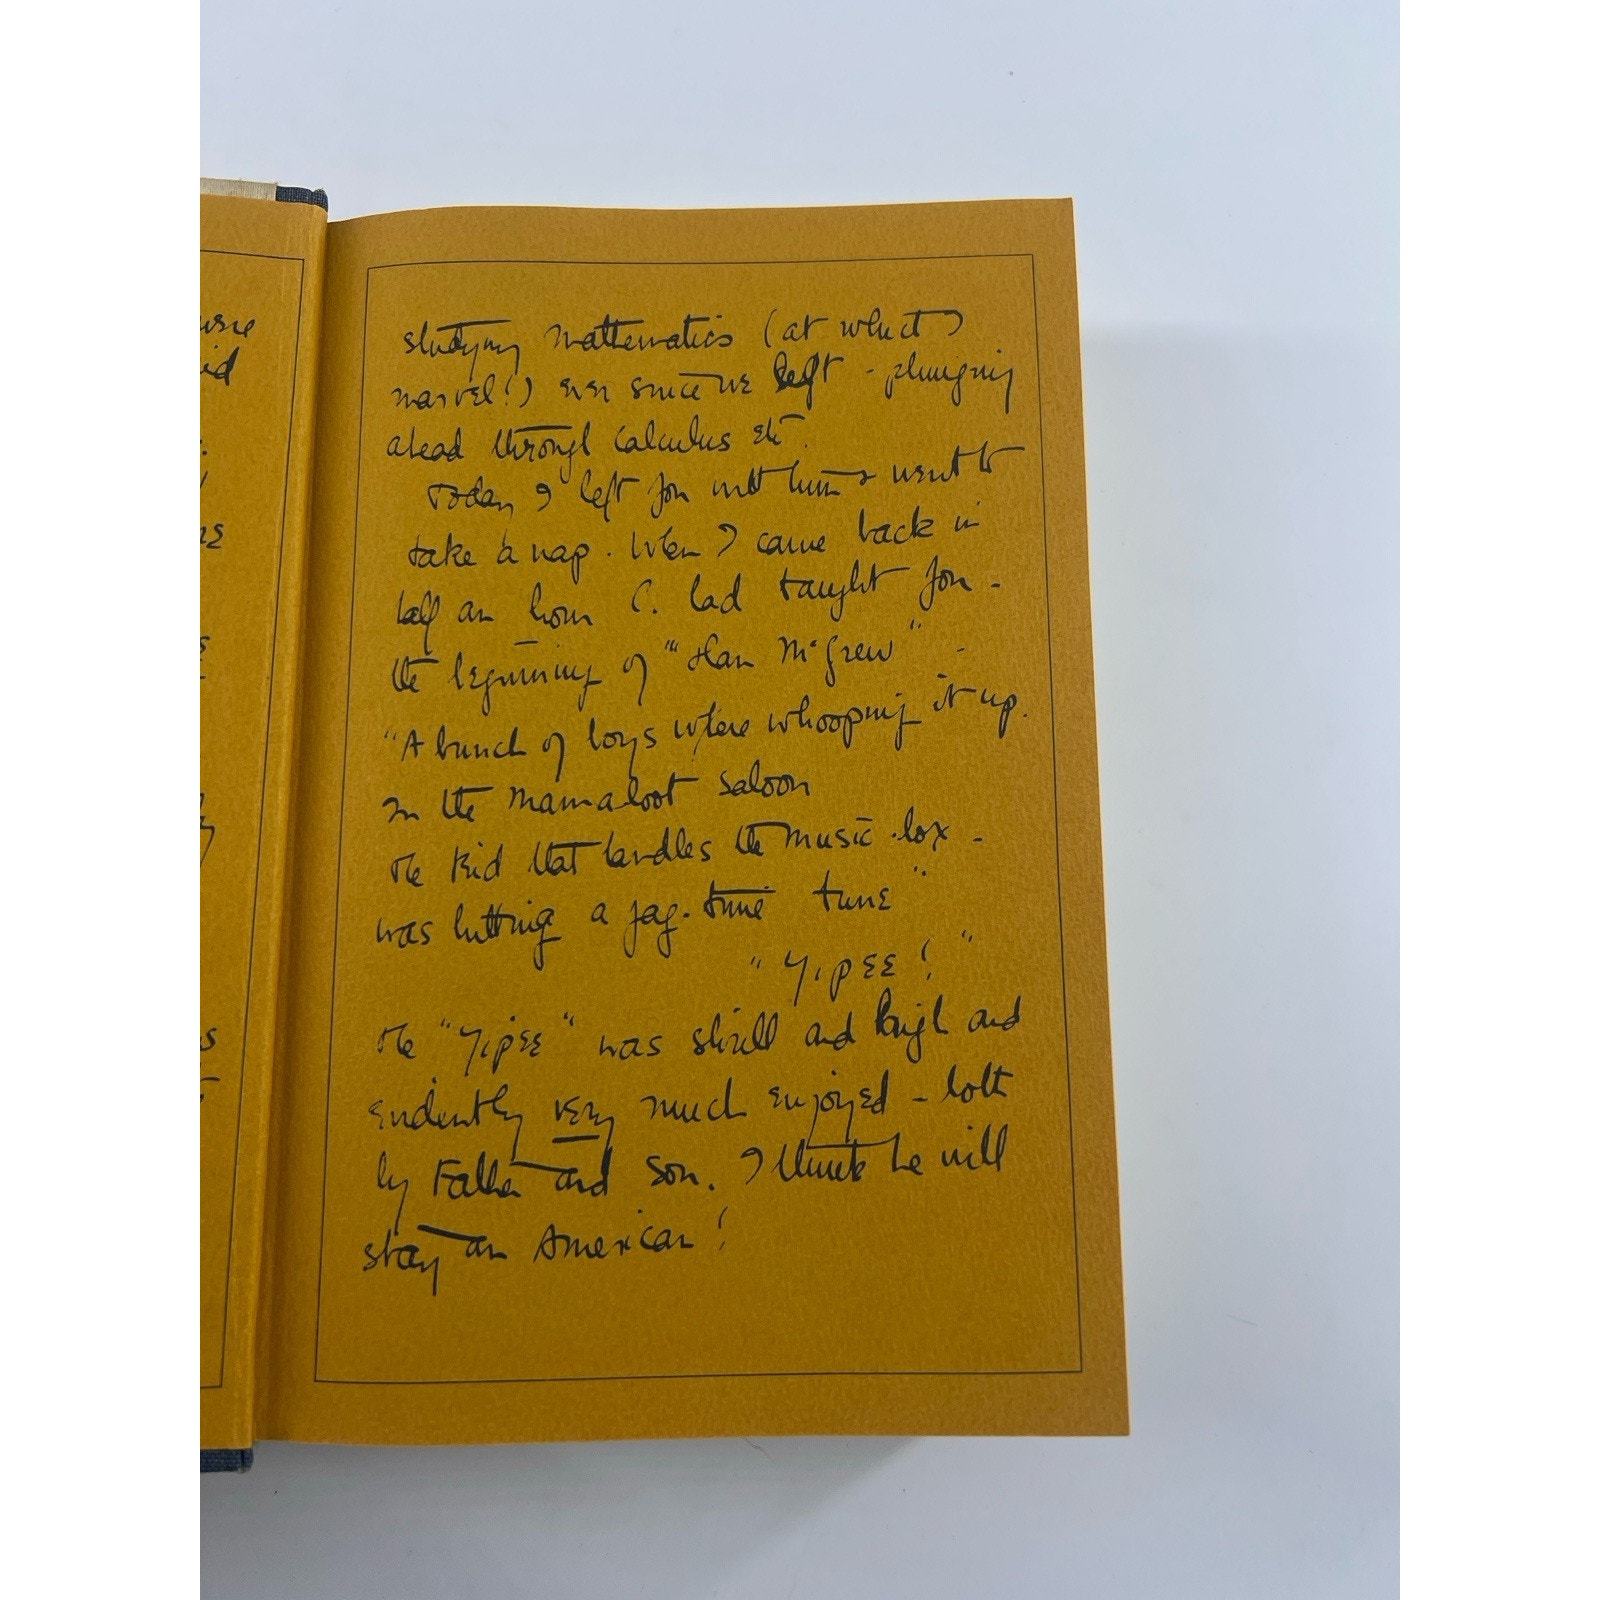 were
id
studying mathematics (at which I
marvel!) ever since we left - plunging
ahead through calculus etc.
Today I left Jon with him & went to
take a nap. When I came back in
half an hour C. had taught Jon -
the beginning of " McGrew" -
"A bunch of boys were whooping it up.
In the Mamaloot saloon
The Kid that handles the music-box -
was hitting a jag-time tune"
"Yipee!"
The "Yipee" was shrill and high and
evidently very much enjoyed - both
by Father and son. I think he will
stay an American!